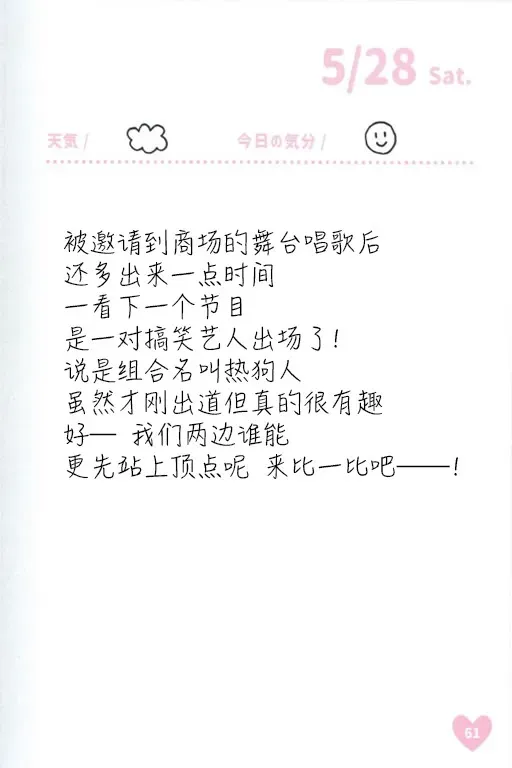 5/28 Sat.
天気 / 今日の気分 /
被邀请到商场的舞台唱歌后
还多出来一点时间
一看下一个节目
是一对搞笑艺人出场了!
说是组合名叫热狗人
虽然才刚出道但真的很有趣
好— 我们两边谁能
更先站上顶点呢 来比一比吧——!
61